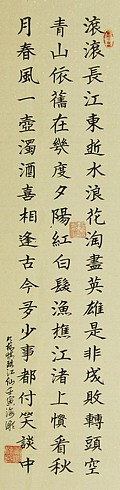 滚滚長江東逝水浪花淘盡英雄是非成敗轉頭空
青山依舊在幾度夕陽紅白髮漁樵江渚上慣看秋
月春風一壺濁酒喜相逢古今多少事都付笑談中
臨江仙壬寅